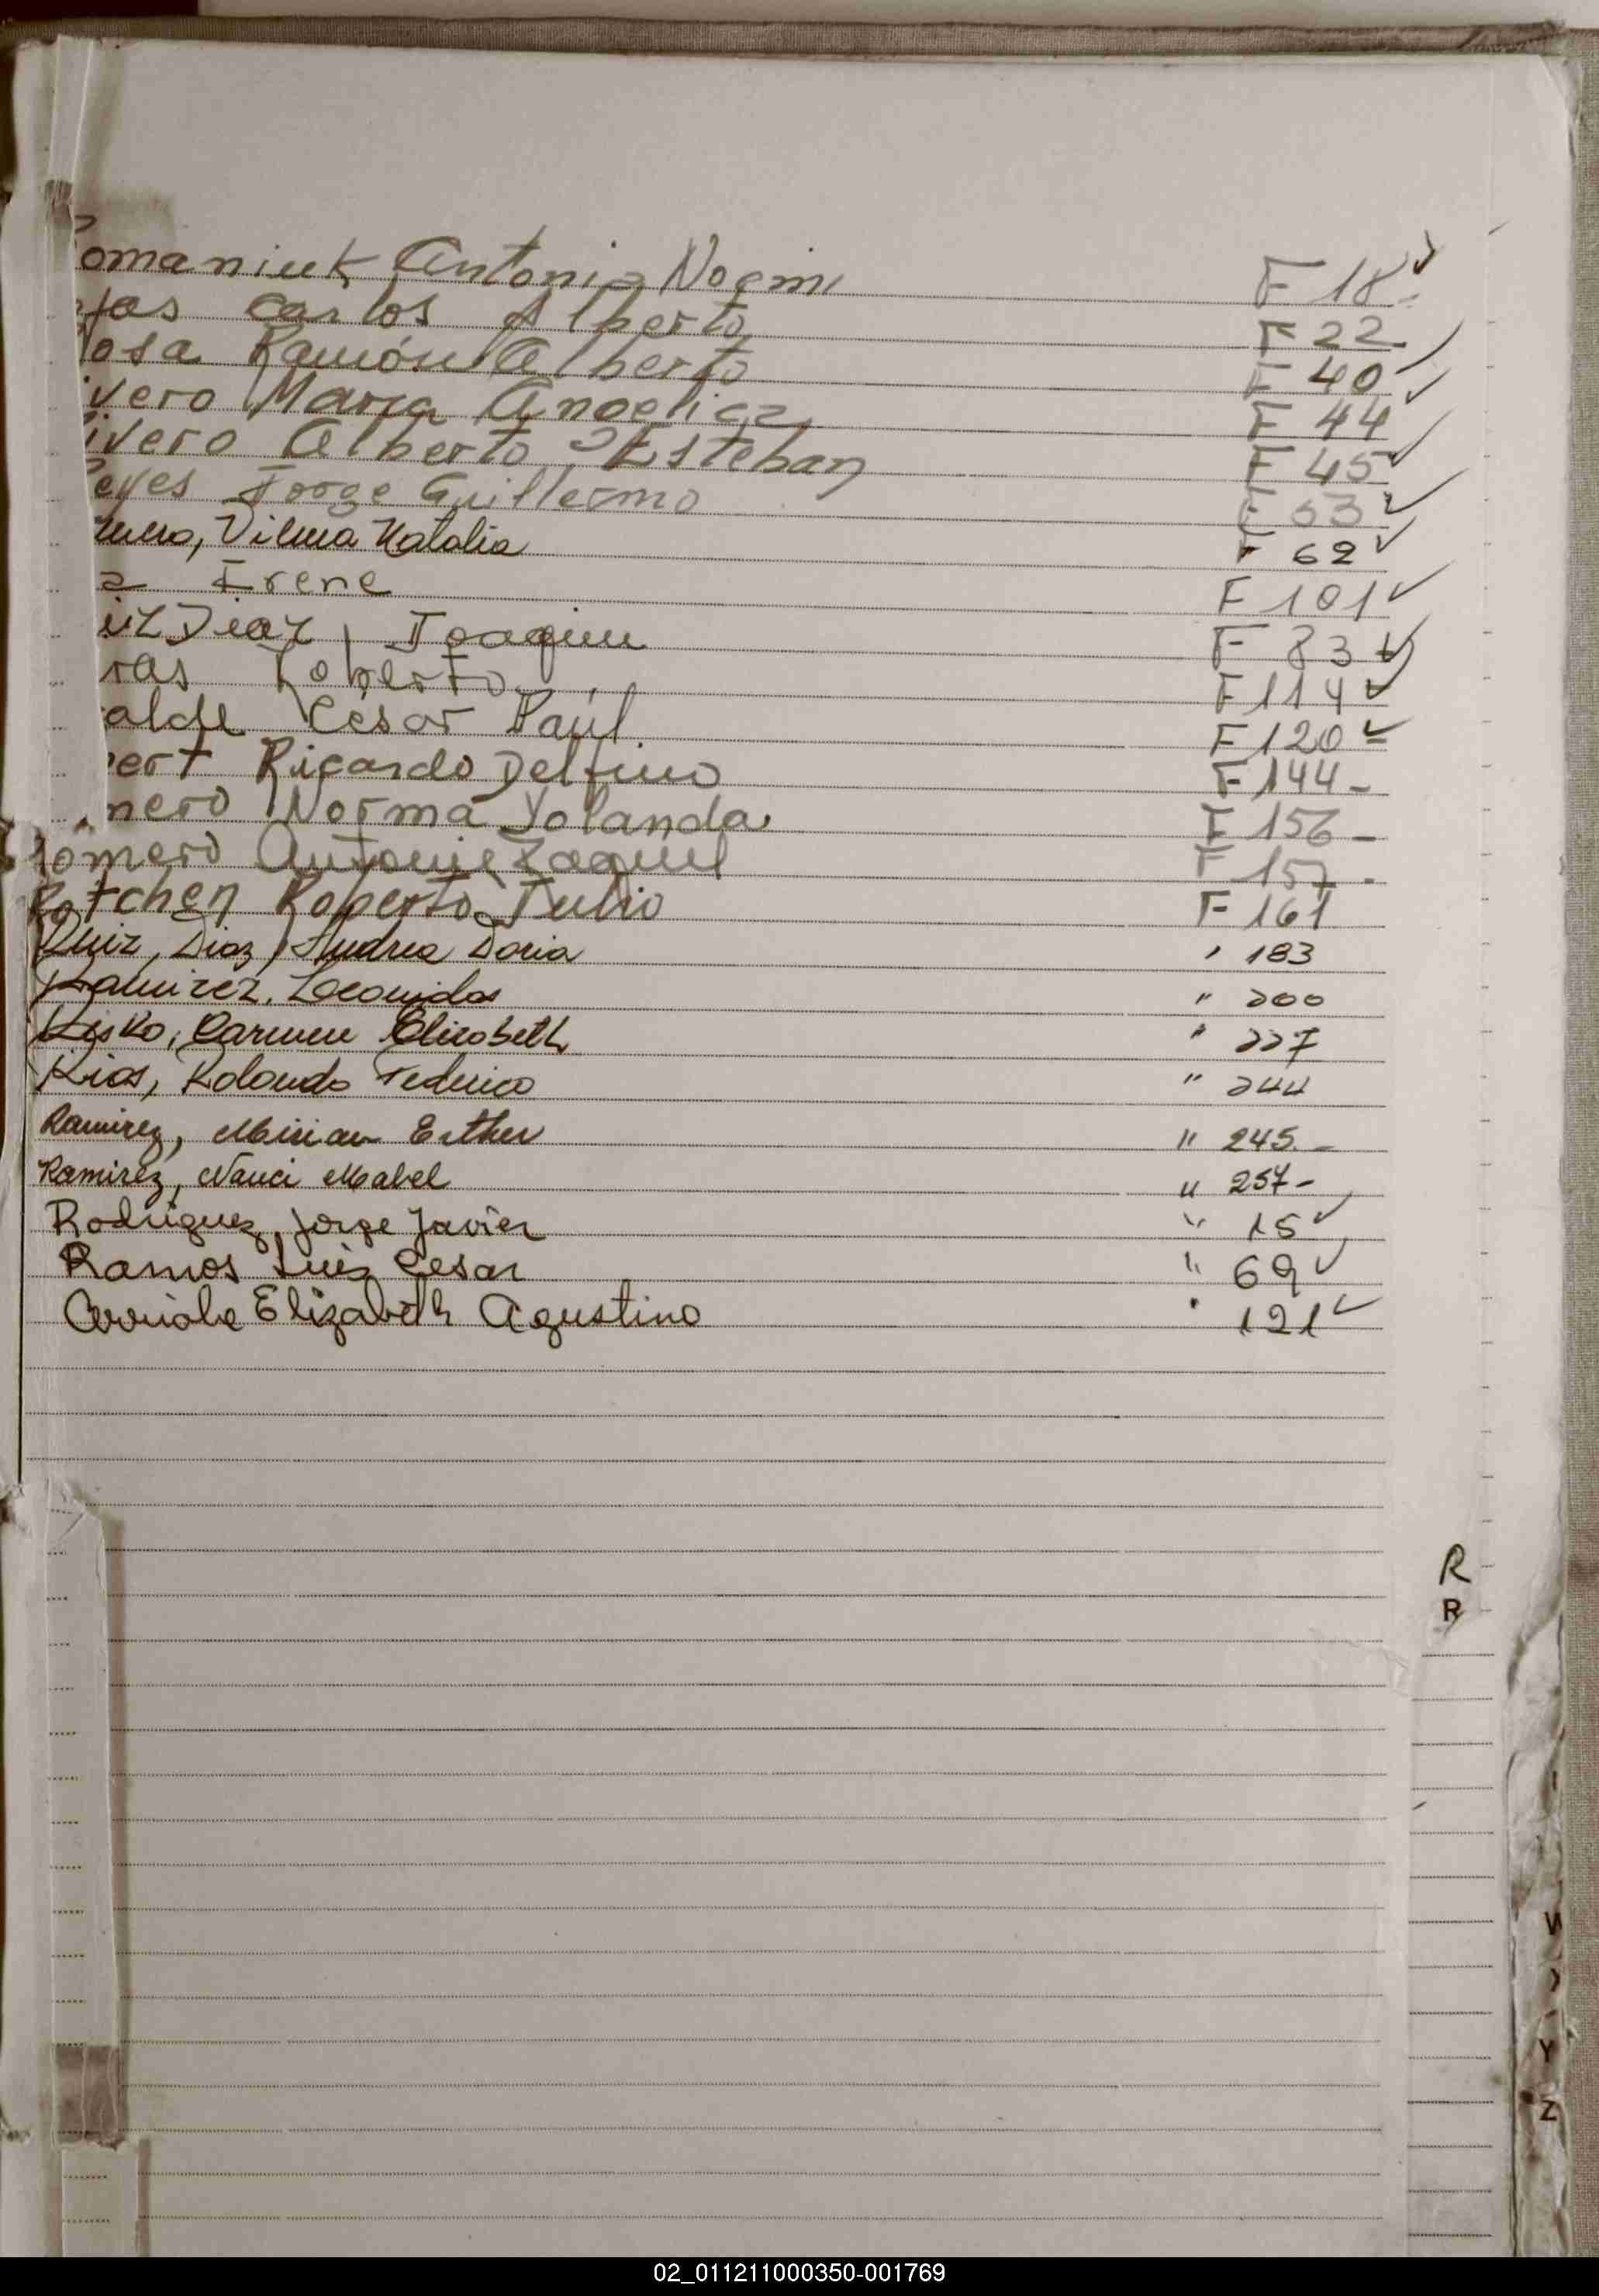 omaniuk Antonia Noemi F 18
jas Carlos Alberto F 22
osa Ramón Alberto F 40
ivero Maria Angelica F 44
ivero Alberto Esteban F 45
eyes Jorge Guillermo F 53
Vilma Natalia F 62
Irene F 101
uiz Diaz, Joaquin F 83
ras Roberto F 114
alde César Raúl F 120
ert Ricardo Delfino F 144 -
mero Norma Yolanda F 156 -
Romero Antonia Raquel F 157 -
Rotchen Roberto Julio F 161
Ruiz, Diaz, Andrea Doria " 183
Ramirez, Leonidas " 200
Risko, Carmen Elizabeth " 227
Rios, Rolando Federico " 244
Ramirez, Mirian Esther " 245 -
Ramirez, Nanci Mabel " 257 -
Rodriguez, Jorge Javier " 15
Ramos Luis Cesar " 69
Elizabeth Agustina " 121
R
R
W
Y
Z
02_011211000350-001769